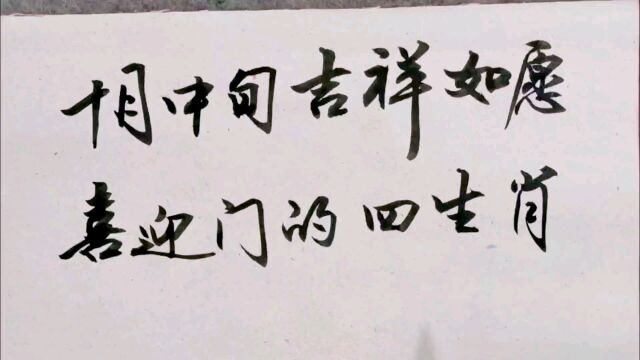 十月中旬吉祥如愿
喜迎门的四生肖